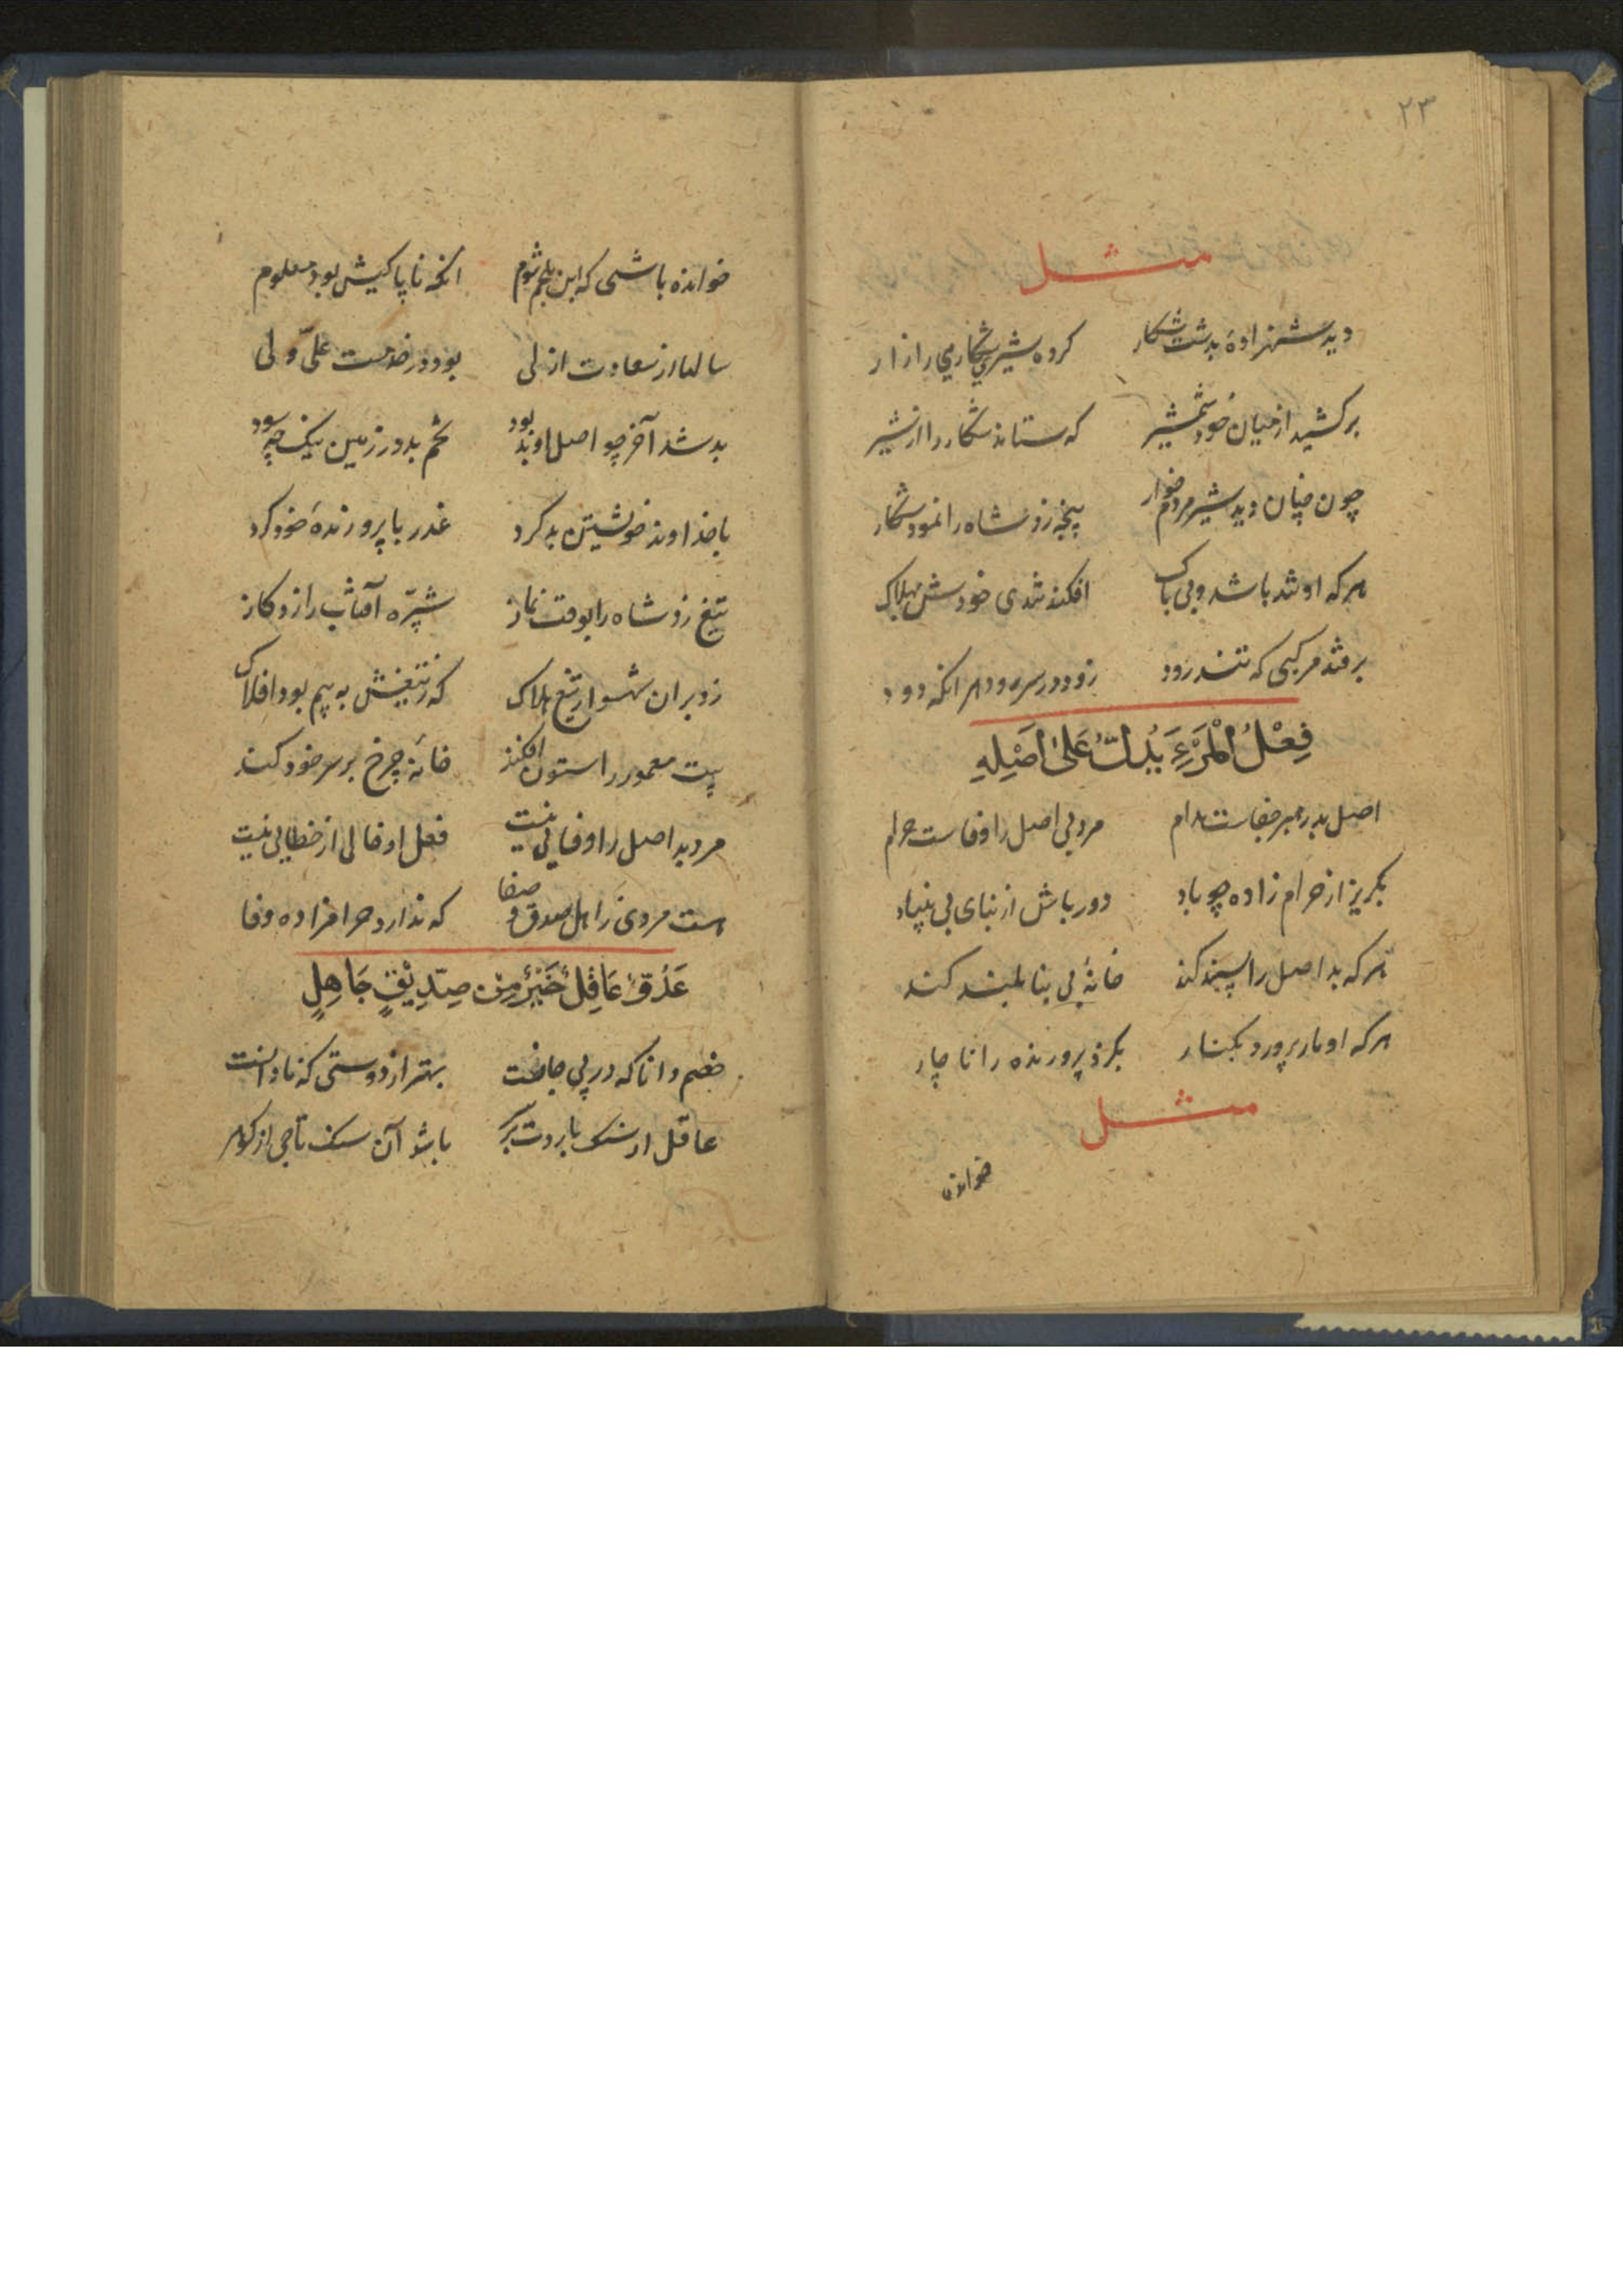 ۲۳
مثل
دید شهزادهٔ بدشت شکار کرده شیری شکاریی را زار
برکشید از میان خود شمشیر که ستاند شکار را از شیر
چون چنان دید شیر مردم خوار پنجه زد شاه را نمود شکار
هرکه او تند باشد و بی باک افکند تندی خودش بهلاک
برفتد مرکبی که تند رود زود در سر رود هر انکه دود
فِعْلُ الْمَرْءِ یَدُلُّ عَلىٰ اَصْلِهِ
اصل بد رهبر جفاست مدام مرد بی اصل را وفاست حرام
بگریز از حرام زاده چو باد دور باش از بنای بی بنیاد
هرکه بد اصل را پسند کند خانهٔ بی بنا بلند کند
هرکه او مار پرورد بکنار بگزد پرورنده را ناچار
مثل
خوانده
خوانده باشی که ابن ملجم شوم انکه ناپاکیش بود معلوم
سالها از سعادت ازلی بود در خدمت علیّ ولی
بد شد آخر چو اصل او بد بود تخم بد در زمین نیک چه سود
با خداوند خویشتن بد کرد غدر با پرورندهٔ خود کرد
تیغ زد شاه را بوقت نماز شپّره آفتاب را زد گاز
زد بران شهسوار تیغ هلاک که ز تیغش به بیم بود افلاک
بیت معمور را ستون افکند خانهٔ چرخ بر سر خود کند
مرد بد اصل را وفایی نیست فعل او خالی از خطایی نیست
هست مروی ز اهل صدق و صفا که ندارد حرامزاده وفا
عَدُوٌّ عَاقِلٌ خَیْرٌ مِنْ صِدِّیْقٍ جَاهِلٍ
خصم دانا که در پی جانست بهتر از دوستی که نادانست
عاقل ار سنک بارد بر باشد آن سنک تاجی از گوهر